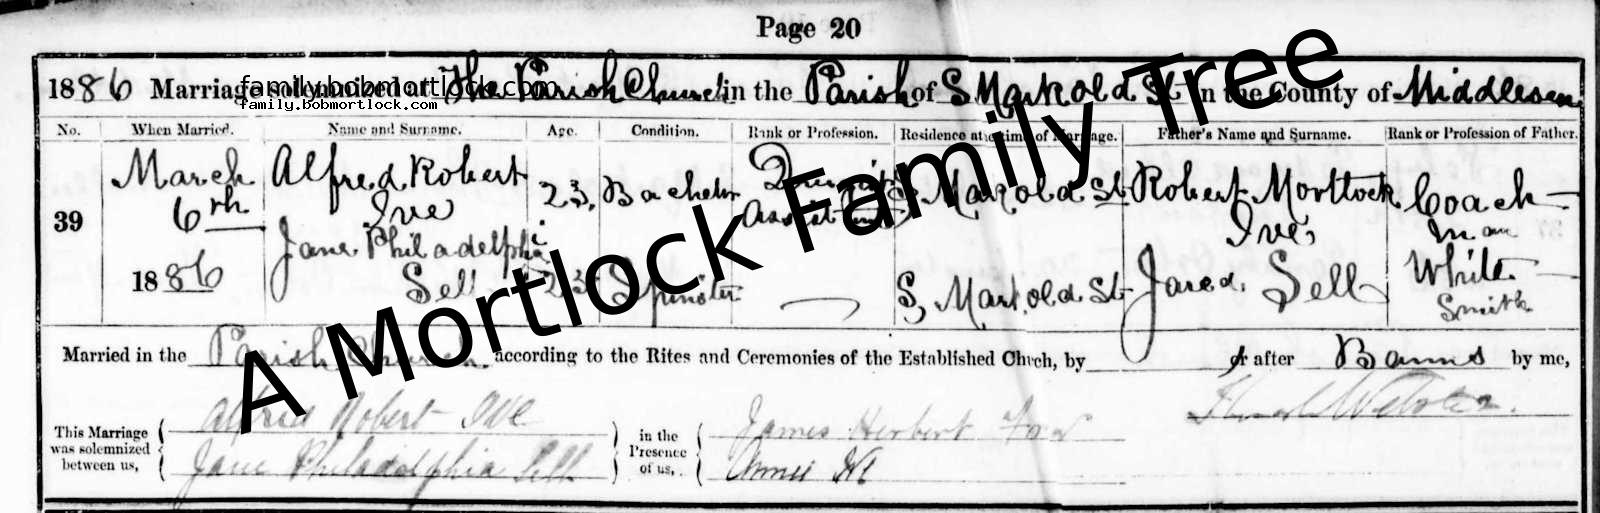 Page 20
1886 Marriage solemnized at The Parish Church in the Parish of S. Mark Old St in the County of Middlesex
family.bobmortlock.com
family.bobmortlock.com
No. When Married. Name and Surname. Age. Condition. Rank or Profession. Residence at the time of Marriage. Father's Name and Surname. Rank or Profession of Father.
39
March
6th
1886
Alfred Robert
Ive
23.
Bachelor
Assist
S. Mark Old St
Robert Mortlock
Ive
Coach
man
Jane Philadelphia
Sell
23
Spinster
S. Mark Old St
Jared Sell
White
Smith
Married in the Parish Church. according to the Rites and Ceremonies of the Established Church, by or after Banns by me,
This Marriage
was solemnized
between us,
Alfred Robert Ive
Jane Philadelphia Sell
in the
Presence
of us,
James Herbert
Webster.
A Mortlock Family Tree